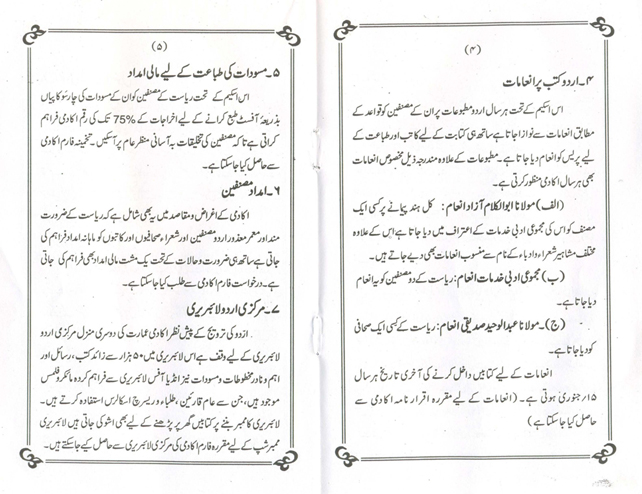 (۴)
۴۔ اردو کتب پر انعامات
اس اسکیم کے تحت ہر سال اردو مطبوعات پر ان کے مصنفین کو قواعد کے
مطابق انعامات سے نوازا جاتا ہے ساتھ ہی کتابت کے لیے کاتب اور طباعت کے
لیے پریس کو انعام دیا جاتا ہے۔ مطبوعات کے علاوہ مندرجہ ذیل مخصوص انعامات
بھی ہر سال اکادمی منظور کرتی ہے۔
(الف) مولانا ابوالکلام آزاد انعام: کل ہند پیمانے پر کسی ایک
مصنف کو اس کی مجموعی ادبی خدمات کے اعتراف میں دیا جاتا ہے اس کے علاوہ
مختلف مشاہیر شعراء و ادباء کے نام سے منسوب انعامات بھی دیے جاتے ہیں۔
(ب) مجموعی ادبی خدمات انعام: ریاست کے دو مصنفین کو یہ انعام
دیا جاتا ہے۔
(ج)۔ مولانا عبدالوحید صدیقی انعام: ریاست کے کسی ایک صحافی
کو دیا جاتا ہے۔
انعامات کے لیے کتابیں داخل کرنے کی آخری تاریخ ہر سال
۱۵/جنوری ہوتی ہے۔ (انعامات کے لیے مقررہ اقرار نامہ اکادمی سے
حاصل کیا جا سکتا ہے)
(۵)
۵۔ مسودات کی طباعت کے لیے مالی امداد
اس اسکیم کے تحت ریاست کے مصنفین کو ان کے مسودات کی چار سو کاپیاں
بذریعۂ آفسٹ طبع کرانے کے لیے اخراجات کے 75% تک کی رقم اکادمی فراہم
کراتی ہے تاکہ مصنفین کی تخلیقات بہ آسانی منظر عام پر آسکیں۔ تخمینہ فارم اکادمی
سے حاصل کیا جا سکتا ہے۔
۶۔ امداد مصنفین
اکادمی کے اغراض و مقاصد میں یہ بھی شامل ہے کہ ریاست کے ضرورت
مند اور معمر معذور اردو مصنفین اور شعراء صحافیوں اور کاتبوں کو ماہانہ امداد فراہم کی
جاتی ہے ساتھ ہی ضرورت و حالات کے تحت یک مشت مالی امداد بھی فراہم کی جاتی
ہے۔ درخواست فارم اکادمی سے طلب کیا جا سکتا ہے۔
۷۔ مرکزی اردو لائبریری
اردو کی ترویج کے پیش نظر اکادمی عمارت کی دوسری منزل مرکزی اردو
لائبریری کے لیے وقف ہے اس لائبریری میں ۵۰ ہزار سے زائد کتب، رسائل اور
اہم و نادر مخطوطات و مسودات نیز انڈیا آفس لائبریری سے فراہم کردہ مائکرو فلمس
موجود ہیں، جن سے عام قارئین، طلباء و ریسرچ اسکالرس استفادہ کرتے ہیں۔
لائبریری کا ممبر بننے پر کتابیں گھر پر پڑھنے کے لیے بھی اشو کی جاتی ہیں لائبریری
ممبر شپ کے لیے مقررہ فارم اکادمی کی مرکزی لائبریری سے حاصل کیے جا سکتے ہیں۔